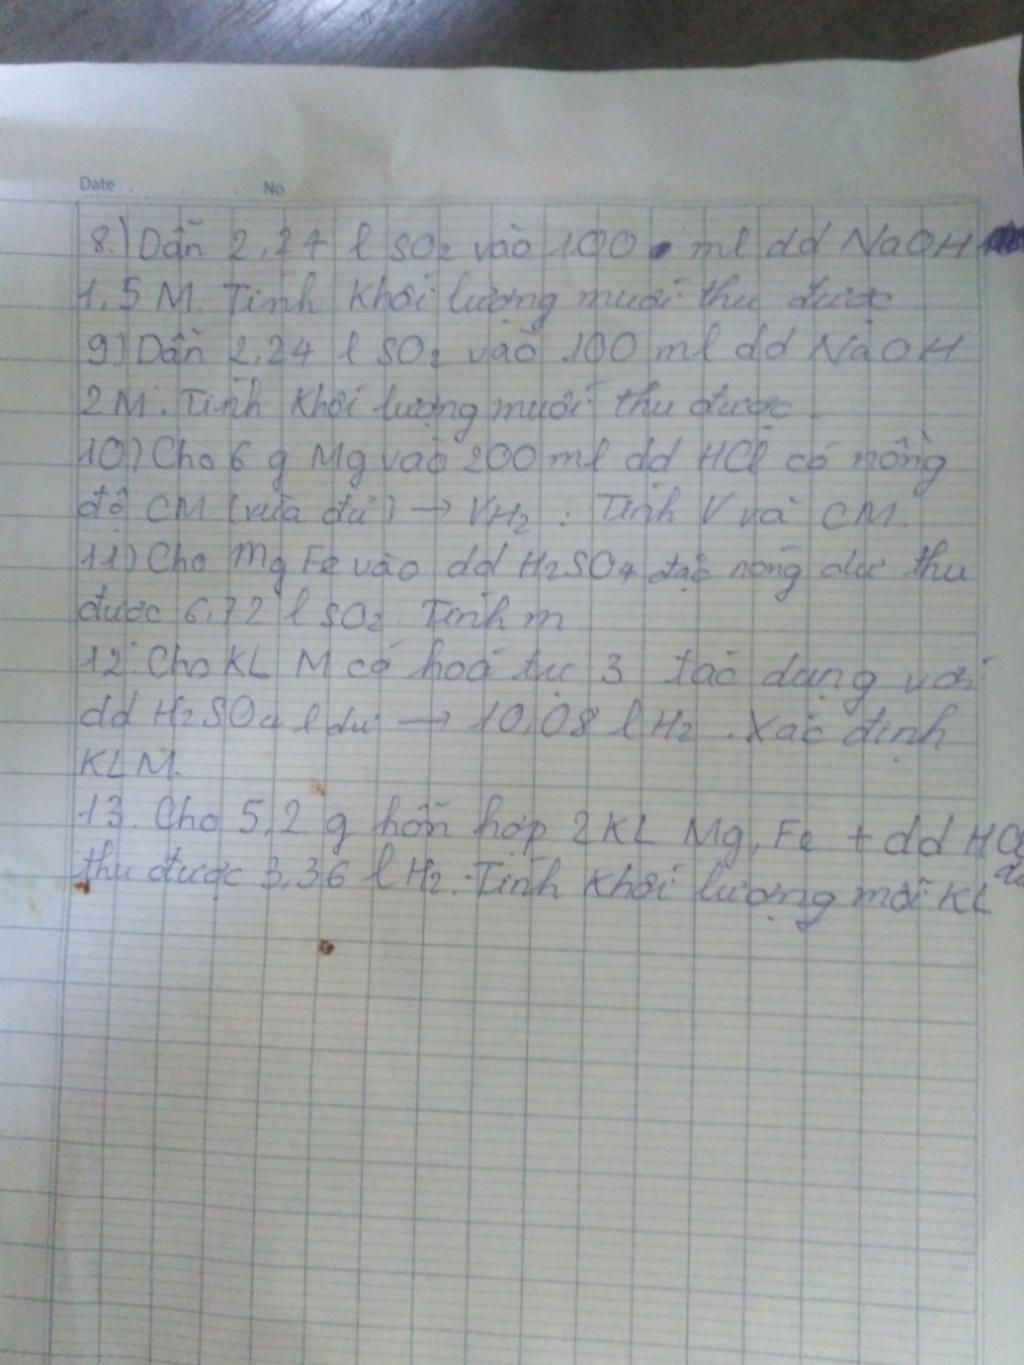 Date No
8.) Dẫn 2,24 l SO2 vào 100 ml dd NaOH
1,5 M. Tính khối lượng muối thu được
9) Dẫn 2,24 l SO2 vào 100 ml dd NaOH
2M. Tính khối lượng muối thu được.
10) Cho 6 g Mg vào 200 ml dd HCl có nồng
độ CM (vừa đủ) → VH2 : Tính V và CM.
11) Cho mg Fe vào dd H2SO4 đặc nóng dư thu
được 6,72 l SO2. Tính m
12. Cho KL M có hoá trị 3 tác dụng với
dd H2SO4 l dư → 10,08 l H2. Xác định
KLM.
13. Cho 5,2 g hỗn hợp 2KL Mg, Fe + dd HCl
thu được 3,36 l H2. Tính khối lượng mỗi KL